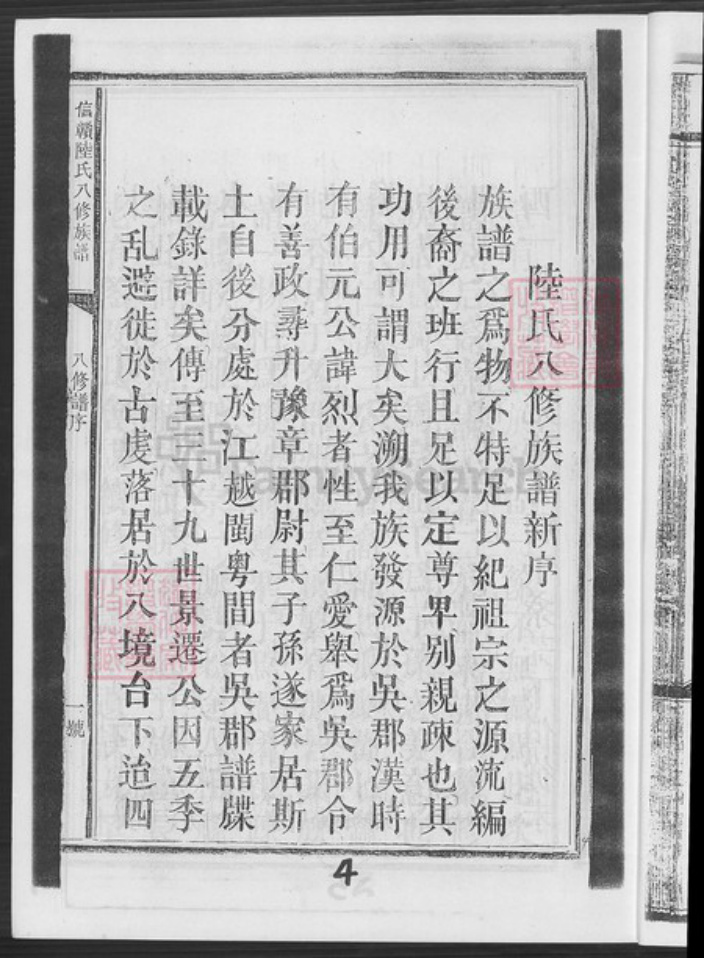 陸氏八修族譜新序
族譜之爲物不特足以紀祖宗之源流編
後裔之班行且足以定尊卑别親疎也其
功用可謂大矣溯我族發源於吳郡漢時
有伯元公諱烈者性至仁愛舉爲吳郡令
有善政尋升豫章郡尉其子孫遂家居斯
土自後分處於江越閩粤間者吳郡譜牒
載錄詳矣傳至三十九世景遷公因五季
之乱避徙於古虔落居於八境台下迨四
信贛陸氏八修族譜
八修譜序
一號
4
FamilySearch